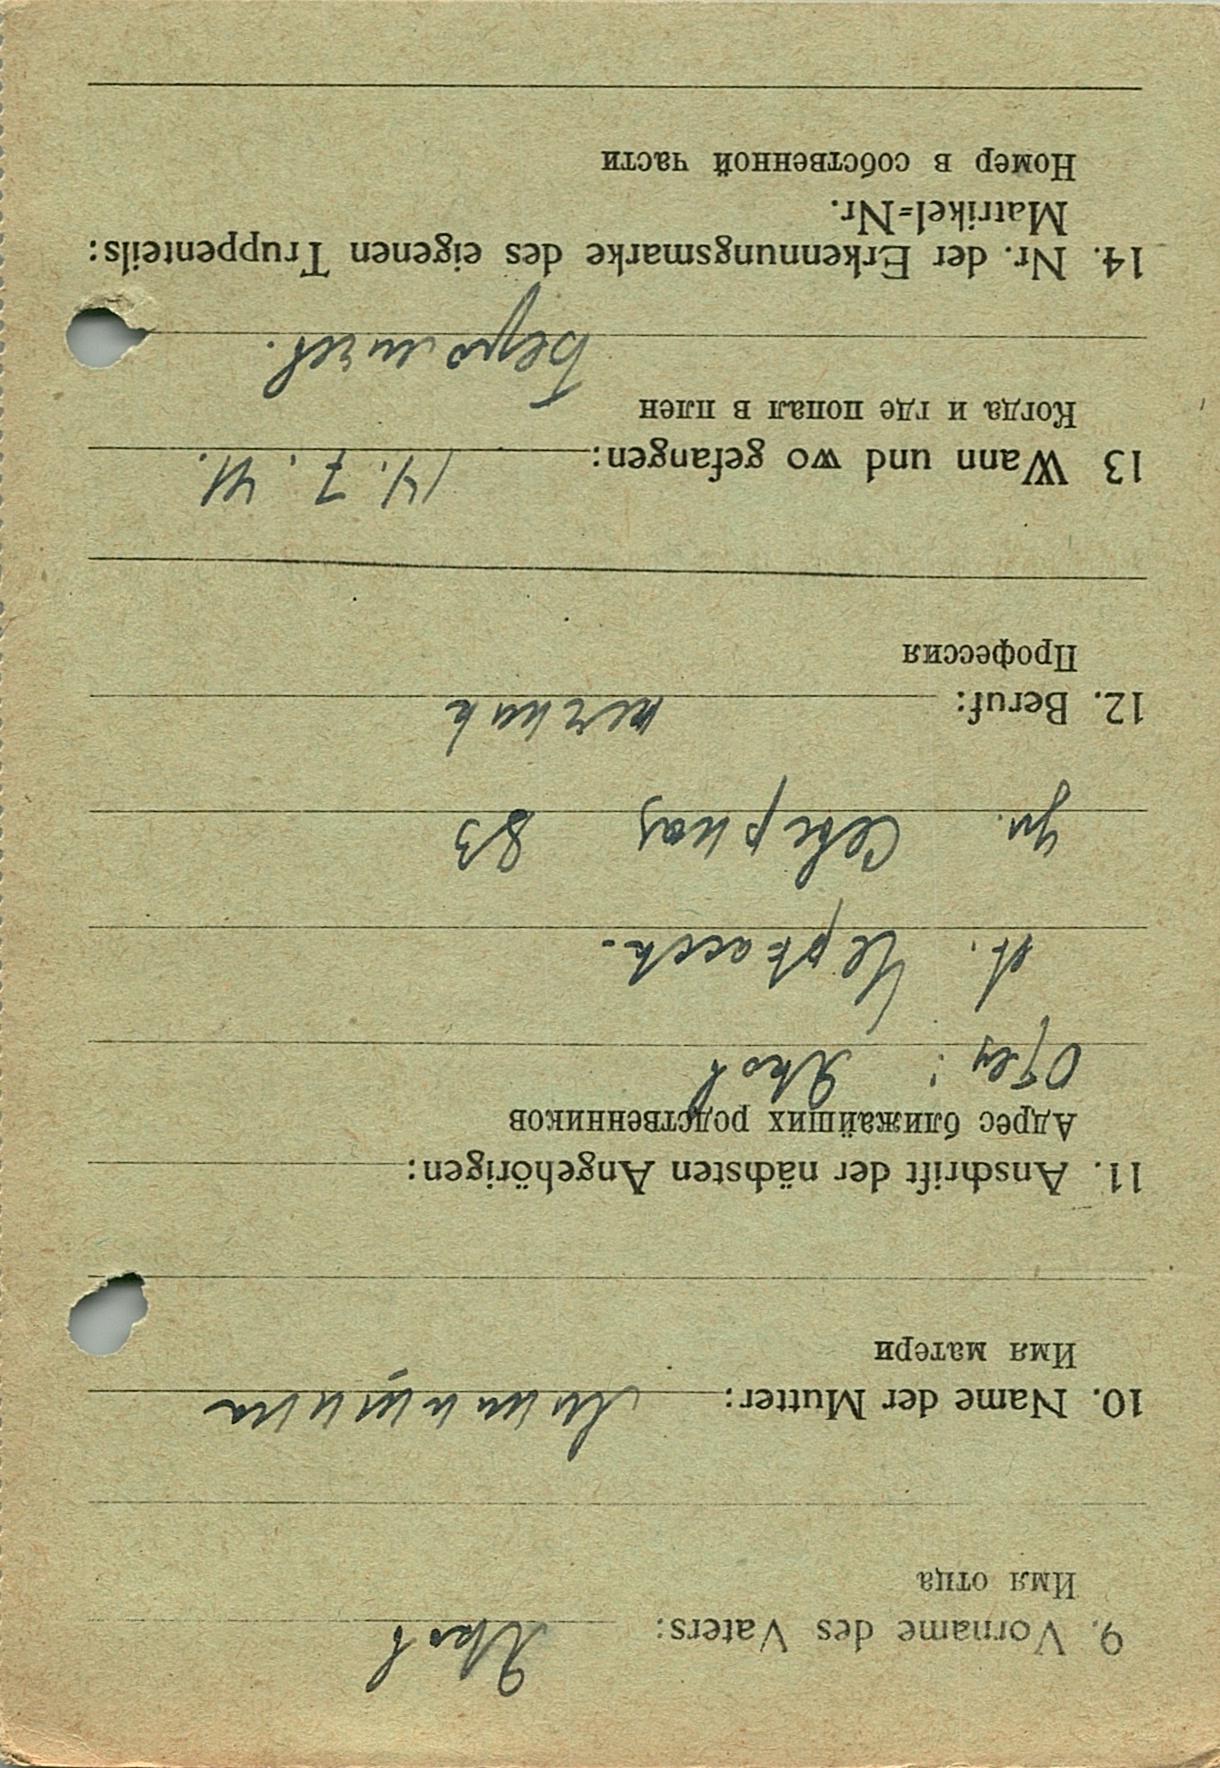 9. Vorname des Vaters: Яков
Имя отца
10. Name der Mutter:
Имя матери
11. Anschrift der nächsten Angehörigen:
Адрес ближайших родственников
Отец: Яков
г. Черкассы.
ул. Северная 83
12. Beruf: печник
Профессия
13 Wann und wo gefangen: 14. 7. 41.
Когда и где попал в плен
Бердичев.
14. Nr. der Erkennungsmarke des eigenen Truppenteils:
Matrikel=Nr.
Номер в собственной части